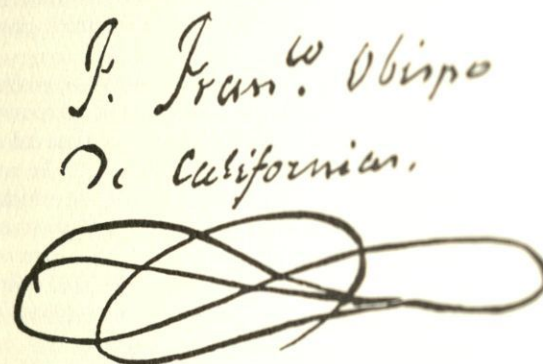 F. Fran.co Obispo
De Californias.